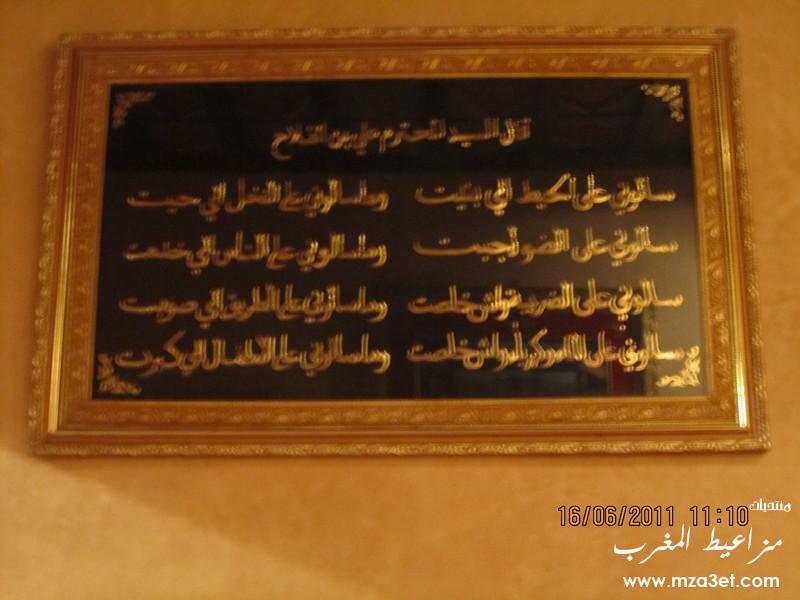 قال السيد المحترم علي بن الفلاح
سالوني على الحيط الي بنيت وما سالوني على النخل الي حييت
سالوني على الضو لجبت وما سالوني على الناس الي
سالوني على الضريبة واش خلصت وما سالوني على الطريق الي صوبت
سالوني على واش خلصت وما سالوني على الاطفال الي كبرت
16/06/2011 11:10
منتديات
مزاعيط المغرب
www.mza3et.com